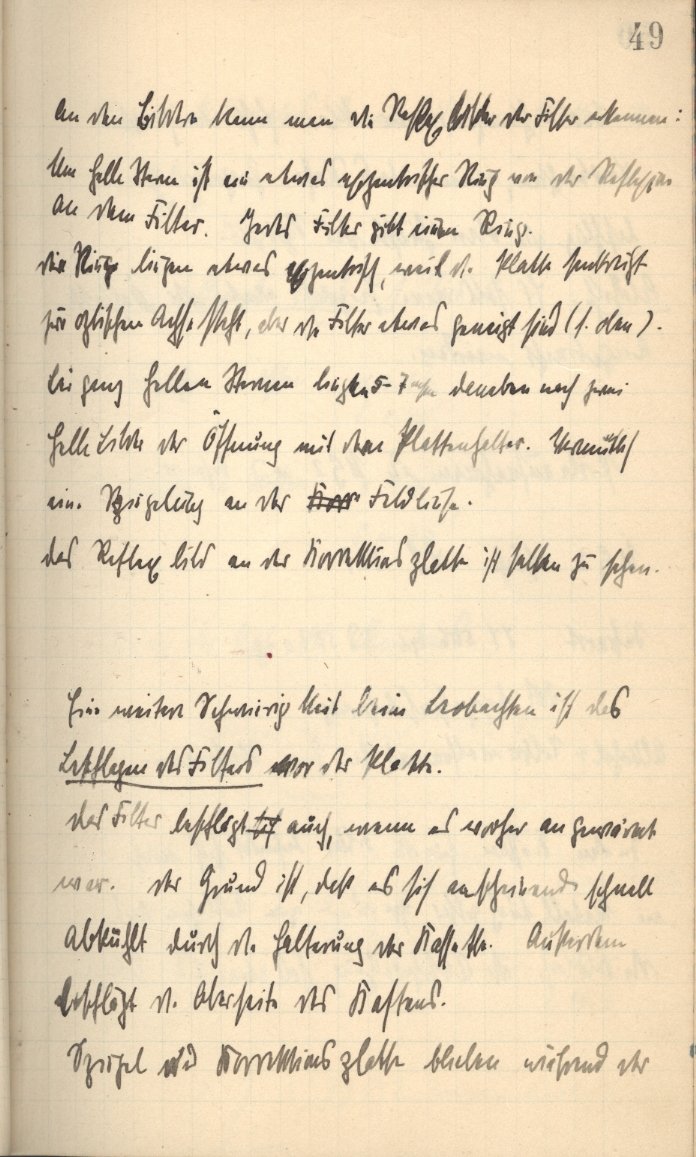 49
An den Bildern kann man die Reflexbilder der Filter erkennen:
Um helle Sterne ist ein etwas exzentrischer Ring von der Reflexion
an dem Filter. Jedes Filter gibt einen Ring.
Die Ringe liegen etwas exzentrisch, weil die Platte senkrecht
zur optischen Achse steht, aber die Filter etwas geneigt sind (s. oben).
Bei ganz hellen Sternen liegen 5-7 daneben noch zwei
helle Bilder der Öffnung mit dem Plattenhalter. Vermutlich
eine Spiegelung an der Korr Feldlinse.
Das Reflexbild an der Korrektionsplatte ist selten zu sehen.
Eine weitere Schwierigkeit beim Beobachten ist das
Beschlagen des Filters vor der Platte.
Das Filter beschlägt auch, wenn es vorher angewärmt
war. Der Grund ist, daß es sich anscheinend schnell
abkühlt durch die Halterung der Kassette. Außerdem
beschlägt die Oberseite des Kastens.
Spiegel und Korrektionsplatte blieben während der